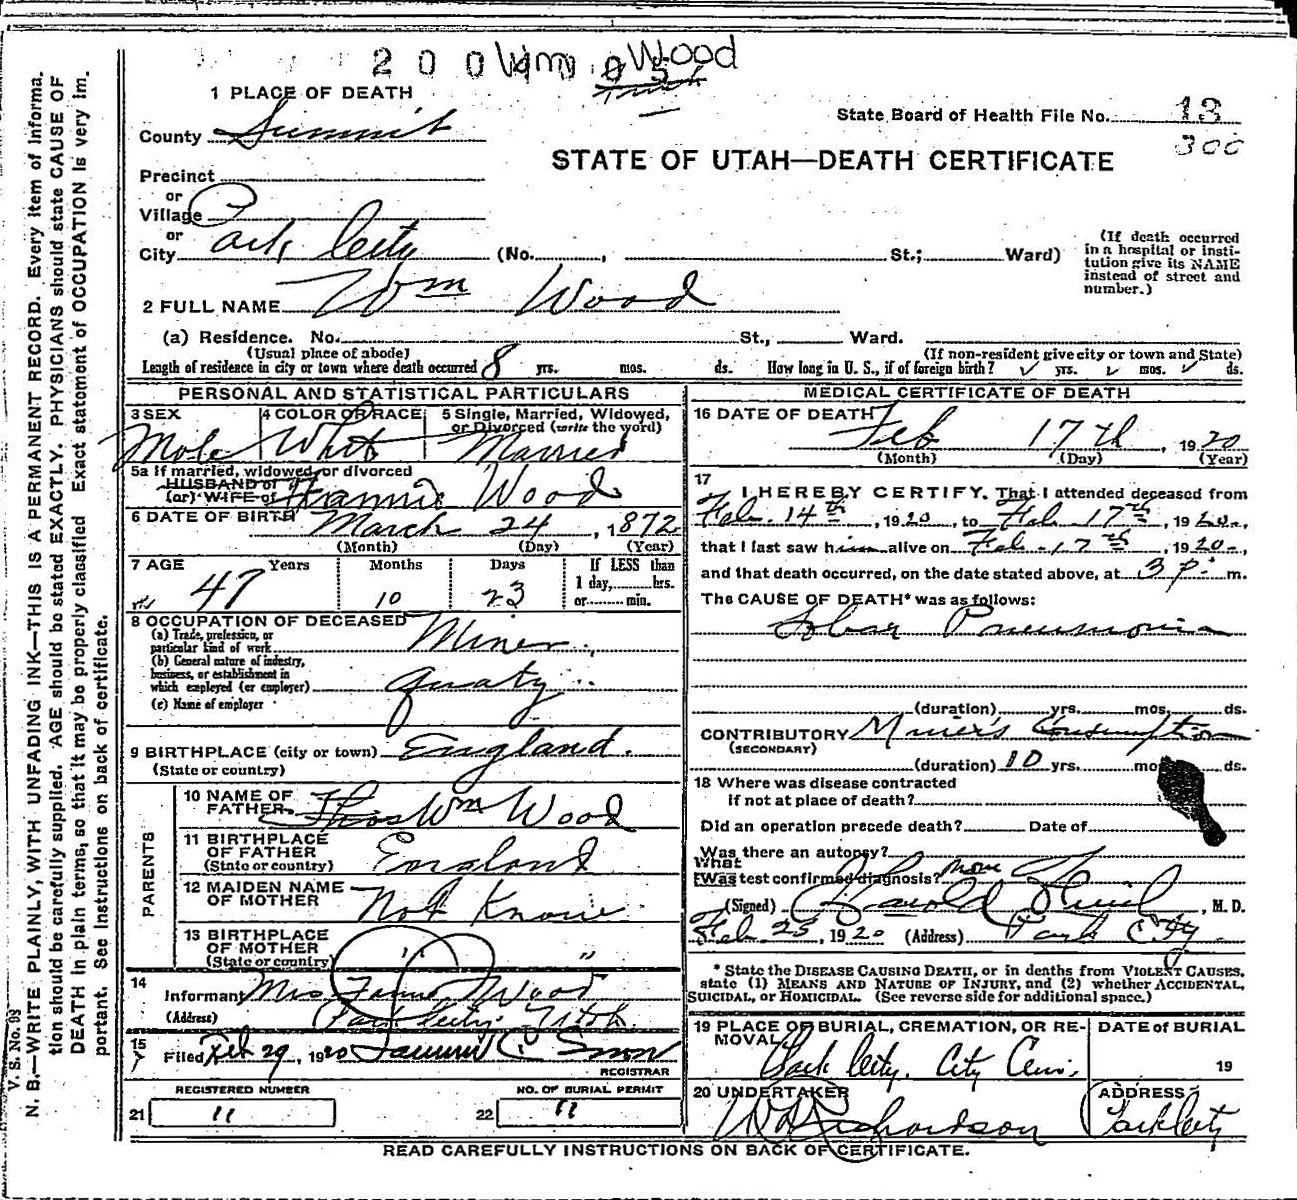 200 Wm Wood
1 PLACE OF DEATH
State Board of Health File No. 13
300
County Summit
STATE OF UTAH—DEATH CERTIFICATE
Precinct
or
Village
or
City Park City (No. , St.; Ward)
(If death occurred in a hospital or institution give its NAME instead of street and number.)
2 FULL NAME Wm Wood
(a) Residence. No. St., Ward.
(Usual place of abode) (If non-resident give city or town and State)
Length of residence in city or town where death occurred 8 yrs. mos. ds. How long in U. S., if of foreign birth? yrs. mos. ds.
PERSONAL AND STATISTICAL PARTICULARS
3 SEX 4 COLOR OR RACE 5 Single, Married, Widowed, or Divorced (write the word)
Male White Married
5a If married, widowed, or divorced
HUSBAND of
(or) WIFE of Fannie Wood
6 DATE OF BIRTH March 24, 1872
(Month) (Day) (Year)
7 AGE Years Months Days If LESS than
1 day, hrs.
or min.
47 10 23
8 OCCUPATION OF DECEASED
(a) Trade, profession, or particular kind of work Miner
(b) General nature of industry, business, or establishment in which employed (or employer)
(c) Name of employer
9 BIRTHPLACE (city or town) England.
(State or country)
PARENTS
10 NAME OF FATHER Thos Wm Wood
11 BIRTHPLACE OF FATHER (State or country) England
12 MAIDEN NAME OF MOTHER Not Know
13 BIRTHPLACE OF MOTHER (State or country) " "
14
Informant Mrs Fannie Wood
(Address) Park City Utah
15
Filed Feb 29, 1920
REGISTRAR
REGISTERED NUMBER NO. OF BURIAL PERMIT
21 11 22 11
MEDICAL CERTIFICATE OF DEATH
16 DATE OF DEATH Feb 17th 1920
(Month) (Day) (Year)
17
I HEREBY CERTIFY, That I attended deceased from
Feb. 14th, 1920, to Feb. 17th, 1920.,
that I last saw him alive on Feb. 17th, 1920.,
and that death occurred, on the date stated above, at 3 p. m.
The CAUSE OF DEATH* was as follows:
Lobar Pneumonia
(duration) yrs. mos. ds.
CONTRIBUTORY Miner's Consumption
(SECONDARY)
(duration) 10 yrs. mo ds.
18 Where was disease contracted
if not at place of death?
Did an operation precede death? Date of
Was there an autopsy?
What
Was test confirmed diagnosis? none
(Signed) Harold , M. D.
Feb 25, 1920 (Address) Park City
* State the DISEASE CAUSING DEATH, or in deaths from VIOLENT CAUSES, state (1) MEANS AND NATURE OF INJURY, and (2) whether ACCIDENTAL, SUICIDAL, or HOMICIDAL. (See reverse side for additional space.)
19 PLACE OF BURIAL, CREMATION, OR REMOVAL DATE OF BURIAL
Park City, City Cem. 19
20 UNDERTAKER ADDRESS
W Richardson Park City
READ CAREFULLY INSTRUCTIONS ON BACK OF CERTIFICATE.
V. S. No. 98
N. B.—WRITE PLAINLY, WITH UNFADING INK—THIS IS A PERMANENT RECORD. Every item of informa-
tion should be carefully supplied. AGE should be stated EXACTLY. PHYSICIANS should state CAUSE OF
DEATH in plain terms, so that it may be properly classified. Exact statement of OCCUPATION is very im-
portant. See instructions on back of certificate.